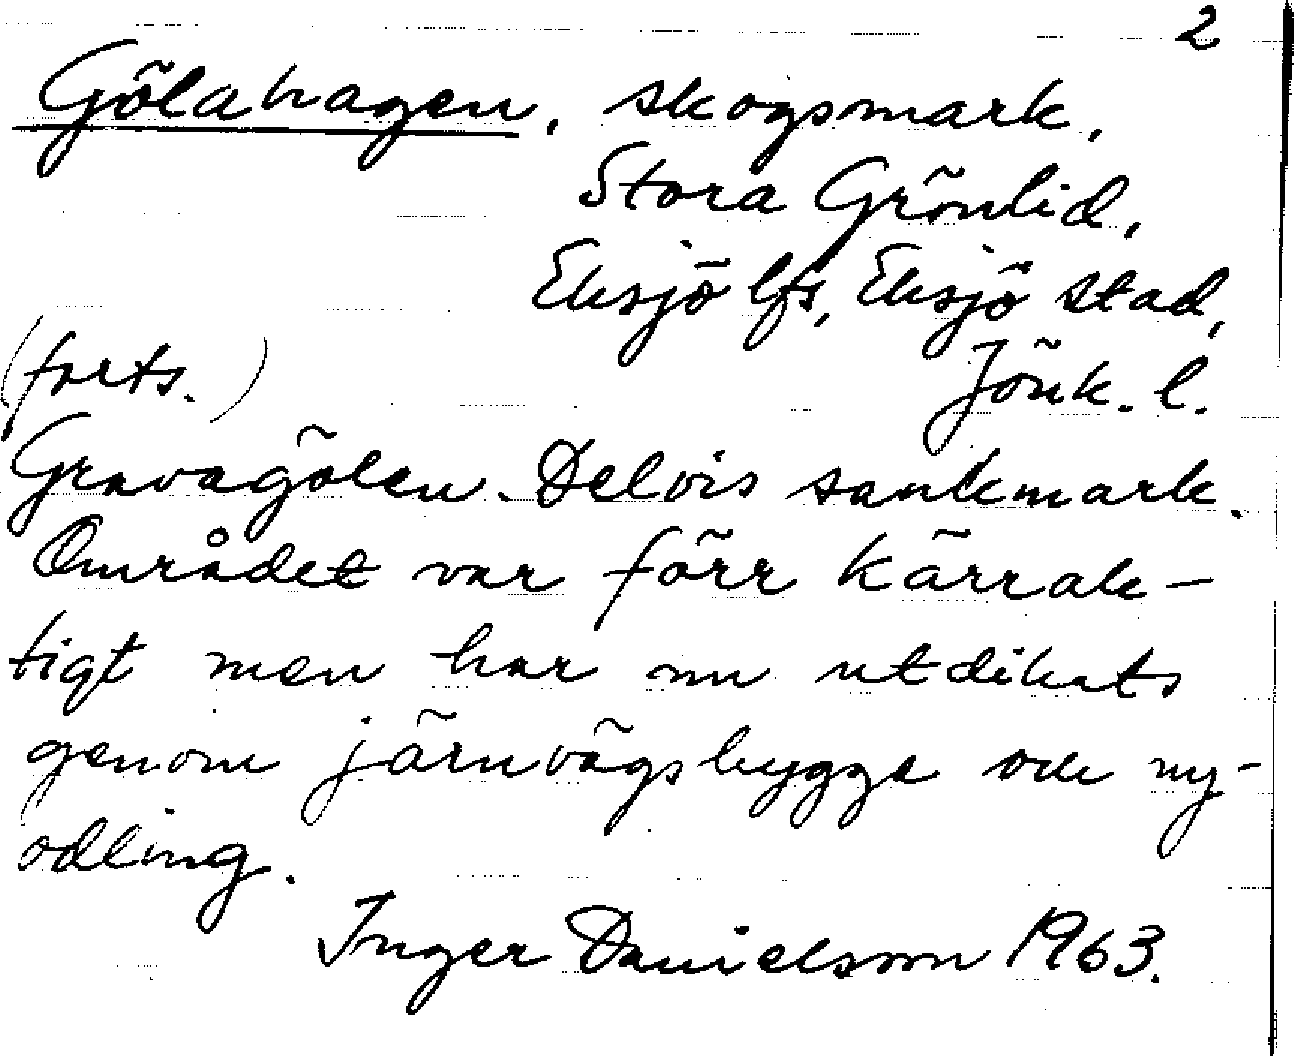 2
Gölahagen, skogsmark,
Stora Grönlid,
Eksjö lfs, Eksjö stad,
(forts.) Jönk. l.
Gravagölen. Delvis sankmark.
Området var förr kärrak-
tigt men har nu utdikats
genom järnvägsbygge och ny-
odling.
Inger Danielsson 1963.